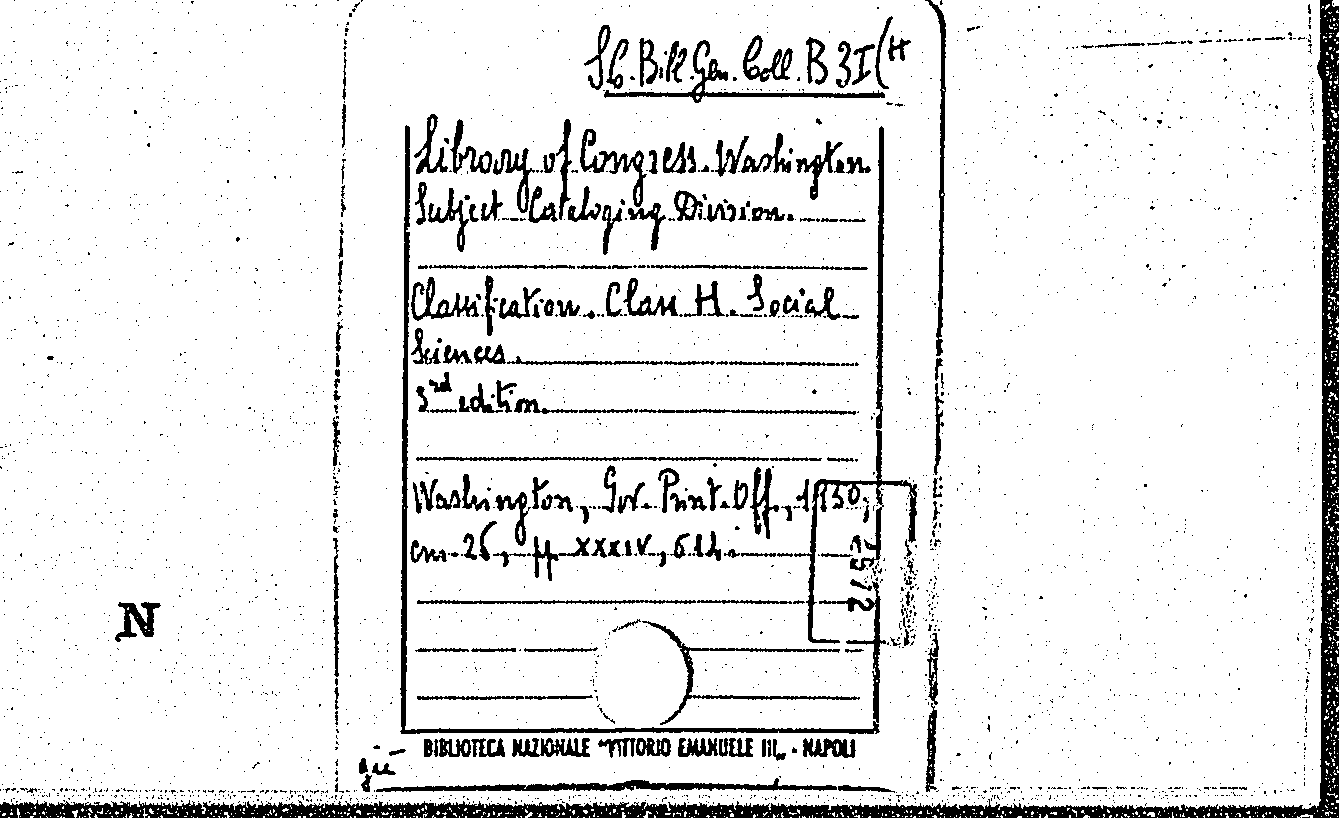 Sc. Bibl. Gen. Coll. B 3I (H
Library of Congress. Washington.
Subject Cataloging Division.
Classification. Class H. Social
Sciences.
3rd edition.
Washington, Gov. Print. Off., 1950,
cm. 26, pp. XXXIV, 614.
2572
N
BIBLIOTECA NAZIONALE "VITTORIO EMANUELE III„ - NAPOLI